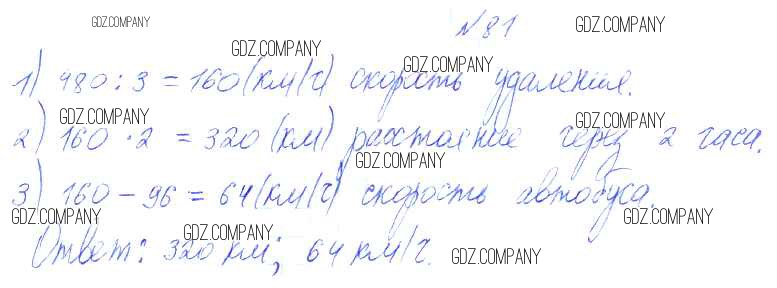 GDZ.COMPANY GDZ.COMPANY
№ 81
GDZ.COMPANY GDZ.COMPANY
1) 480 : 3 = 160 (км/ч) скорость удаления.
GDZ.COMPANY GDZ.COMPANY
2) 160 · 2 = 320 (км) расстояние через 2 часа.
GDZ.COMPANY
3) 160 - 96 = 64 (км/ч) скорость автобуса.
GDZ.COMPANY GDZ.COMPANY GDZ.COMPANY
Ответ: 320 км; 64 км/ч.
GDZ.COMPANY